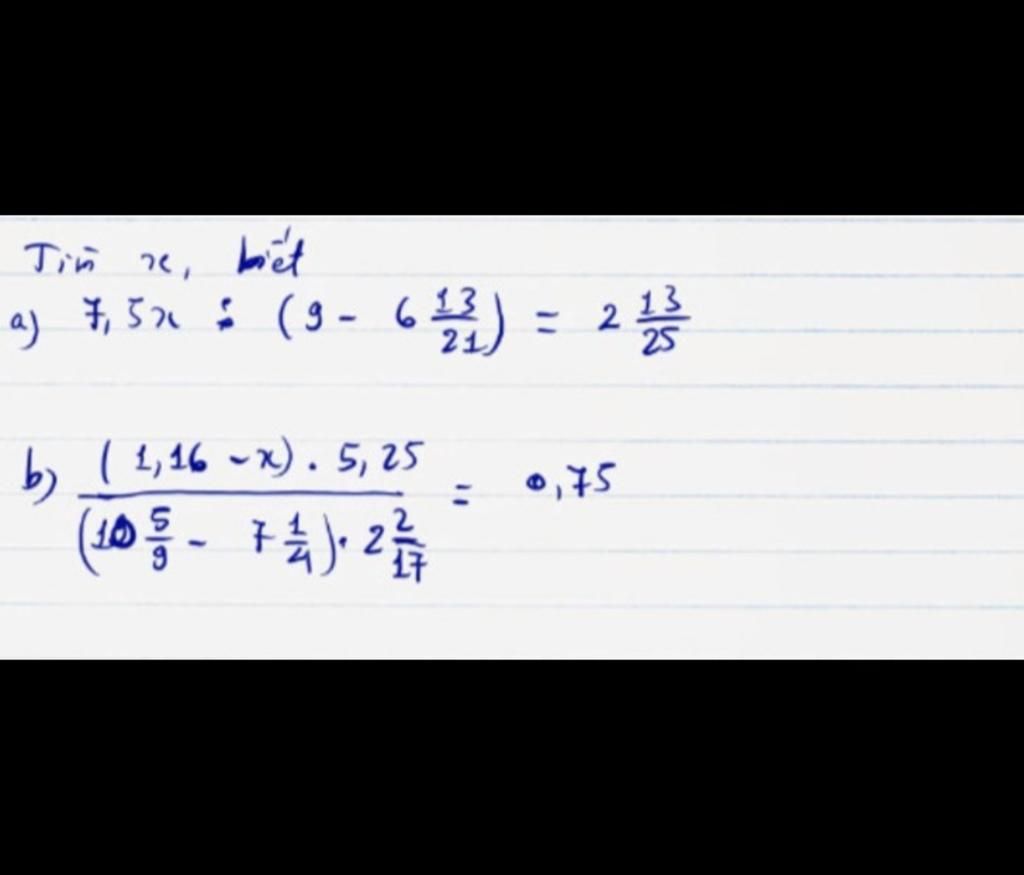 Tìm x, biết
a) 7,5x : (9 - 6 13/21) = 2 13/25
b) (1,16 - x) . 5,25 / (10 5/9 - 7 1/4) . 2 2/17 = 0,75